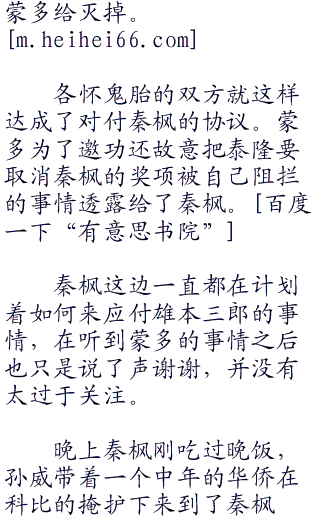 蒙多给灭掉。
[m.heihei66.com]
各怀鬼胎的双方就这样
达成了对付秦枫的协议。蒙
多为了邀功还故意把泰隆要
取消秦枫的奖项被自己阻拦
的事情透露给了秦枫。[百度
一下“有意思书院”]
秦枫这边一直都在计划
着如何来应付雄本三郎的事
情，在听到蒙多的事情之后
也只是说了声谢谢，并没有
太过于关注。
晚上秦枫刚吃过晚饭，
孙威带着一个中年的华侨在
科比的掩护下来到了秦枫